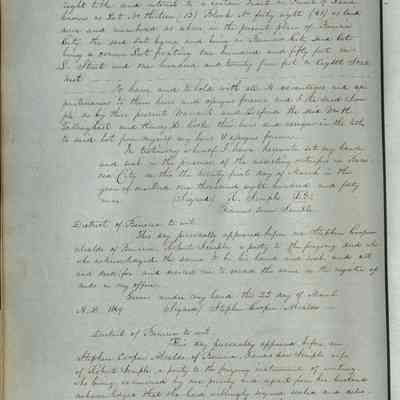 right title and interest to a certain tract or parcel of land
known as Lot No thirteen (13) Block No forty eight (48) as laid
down and numbered as above in the present plan of Benicia
City, the said Lot lying and being in Benicia City, said Lot
being a corner Lot fronting one hundred and fifty feet on
L Street and one hundred and twenty five feet on Eighth Street
West
To have and to hold with all the advantages and ap
purtenances to them heirs and assigns forever and I the said
do by these presents Warrant and Defend the said
and Henry D. Cooke their heirs and assigns in the title
to said lot from myself my heirs & assigns forever
In testimony whereof I have hereunto set my hand
and seal in the presence of the assisting witnesses in Beni
cia City on this the twenty first day of March in the
year of our Lord one thousand eight hundred and forty
nine. (Signed) R. Semple (L.S.)
Semple
District of Benicia to wit
This day personally appeared before me Stephen Cooper
Alcalde of Benicia, Robert Semple, a party to the foregoing and who
who acknowledged the same to be his hand and seal, and act
and deed for and desired me to record the same in the register of
deeds in my office.
Given under my hand the 22 day of March
A.D. 1849 (Signed) Stephen Cooper Alcalde
District of Benicia to wit
This day personally appeared before me
Stephen Cooper Alcalde of Benicia, Semple wife
of Robert Semple, a party to the foregoing instrument of writing
she being examined by me privily and apart from her husband
acknowledged that she had willingly signed sealed and